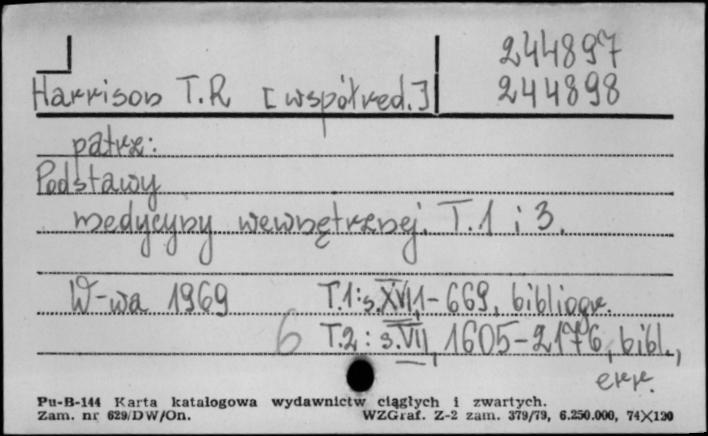 244897
Harrison T.R [współred.] 244898
patrz:
Podstawy
medycyny wewnętrznej. T.1 i 3.
W-wa 1969 T.1: s. XVI, 1-669, bibliogr.
6 T.2: s. VII, 1605-2176, bibl.,
err.
Pu-B-144 Karta katalogowa wydawnictw ciągłych i zwartych.
Zam. nr 629/DW/On. WZGraf. Z-2 zam. 379/79, 6.250.000, 74X120